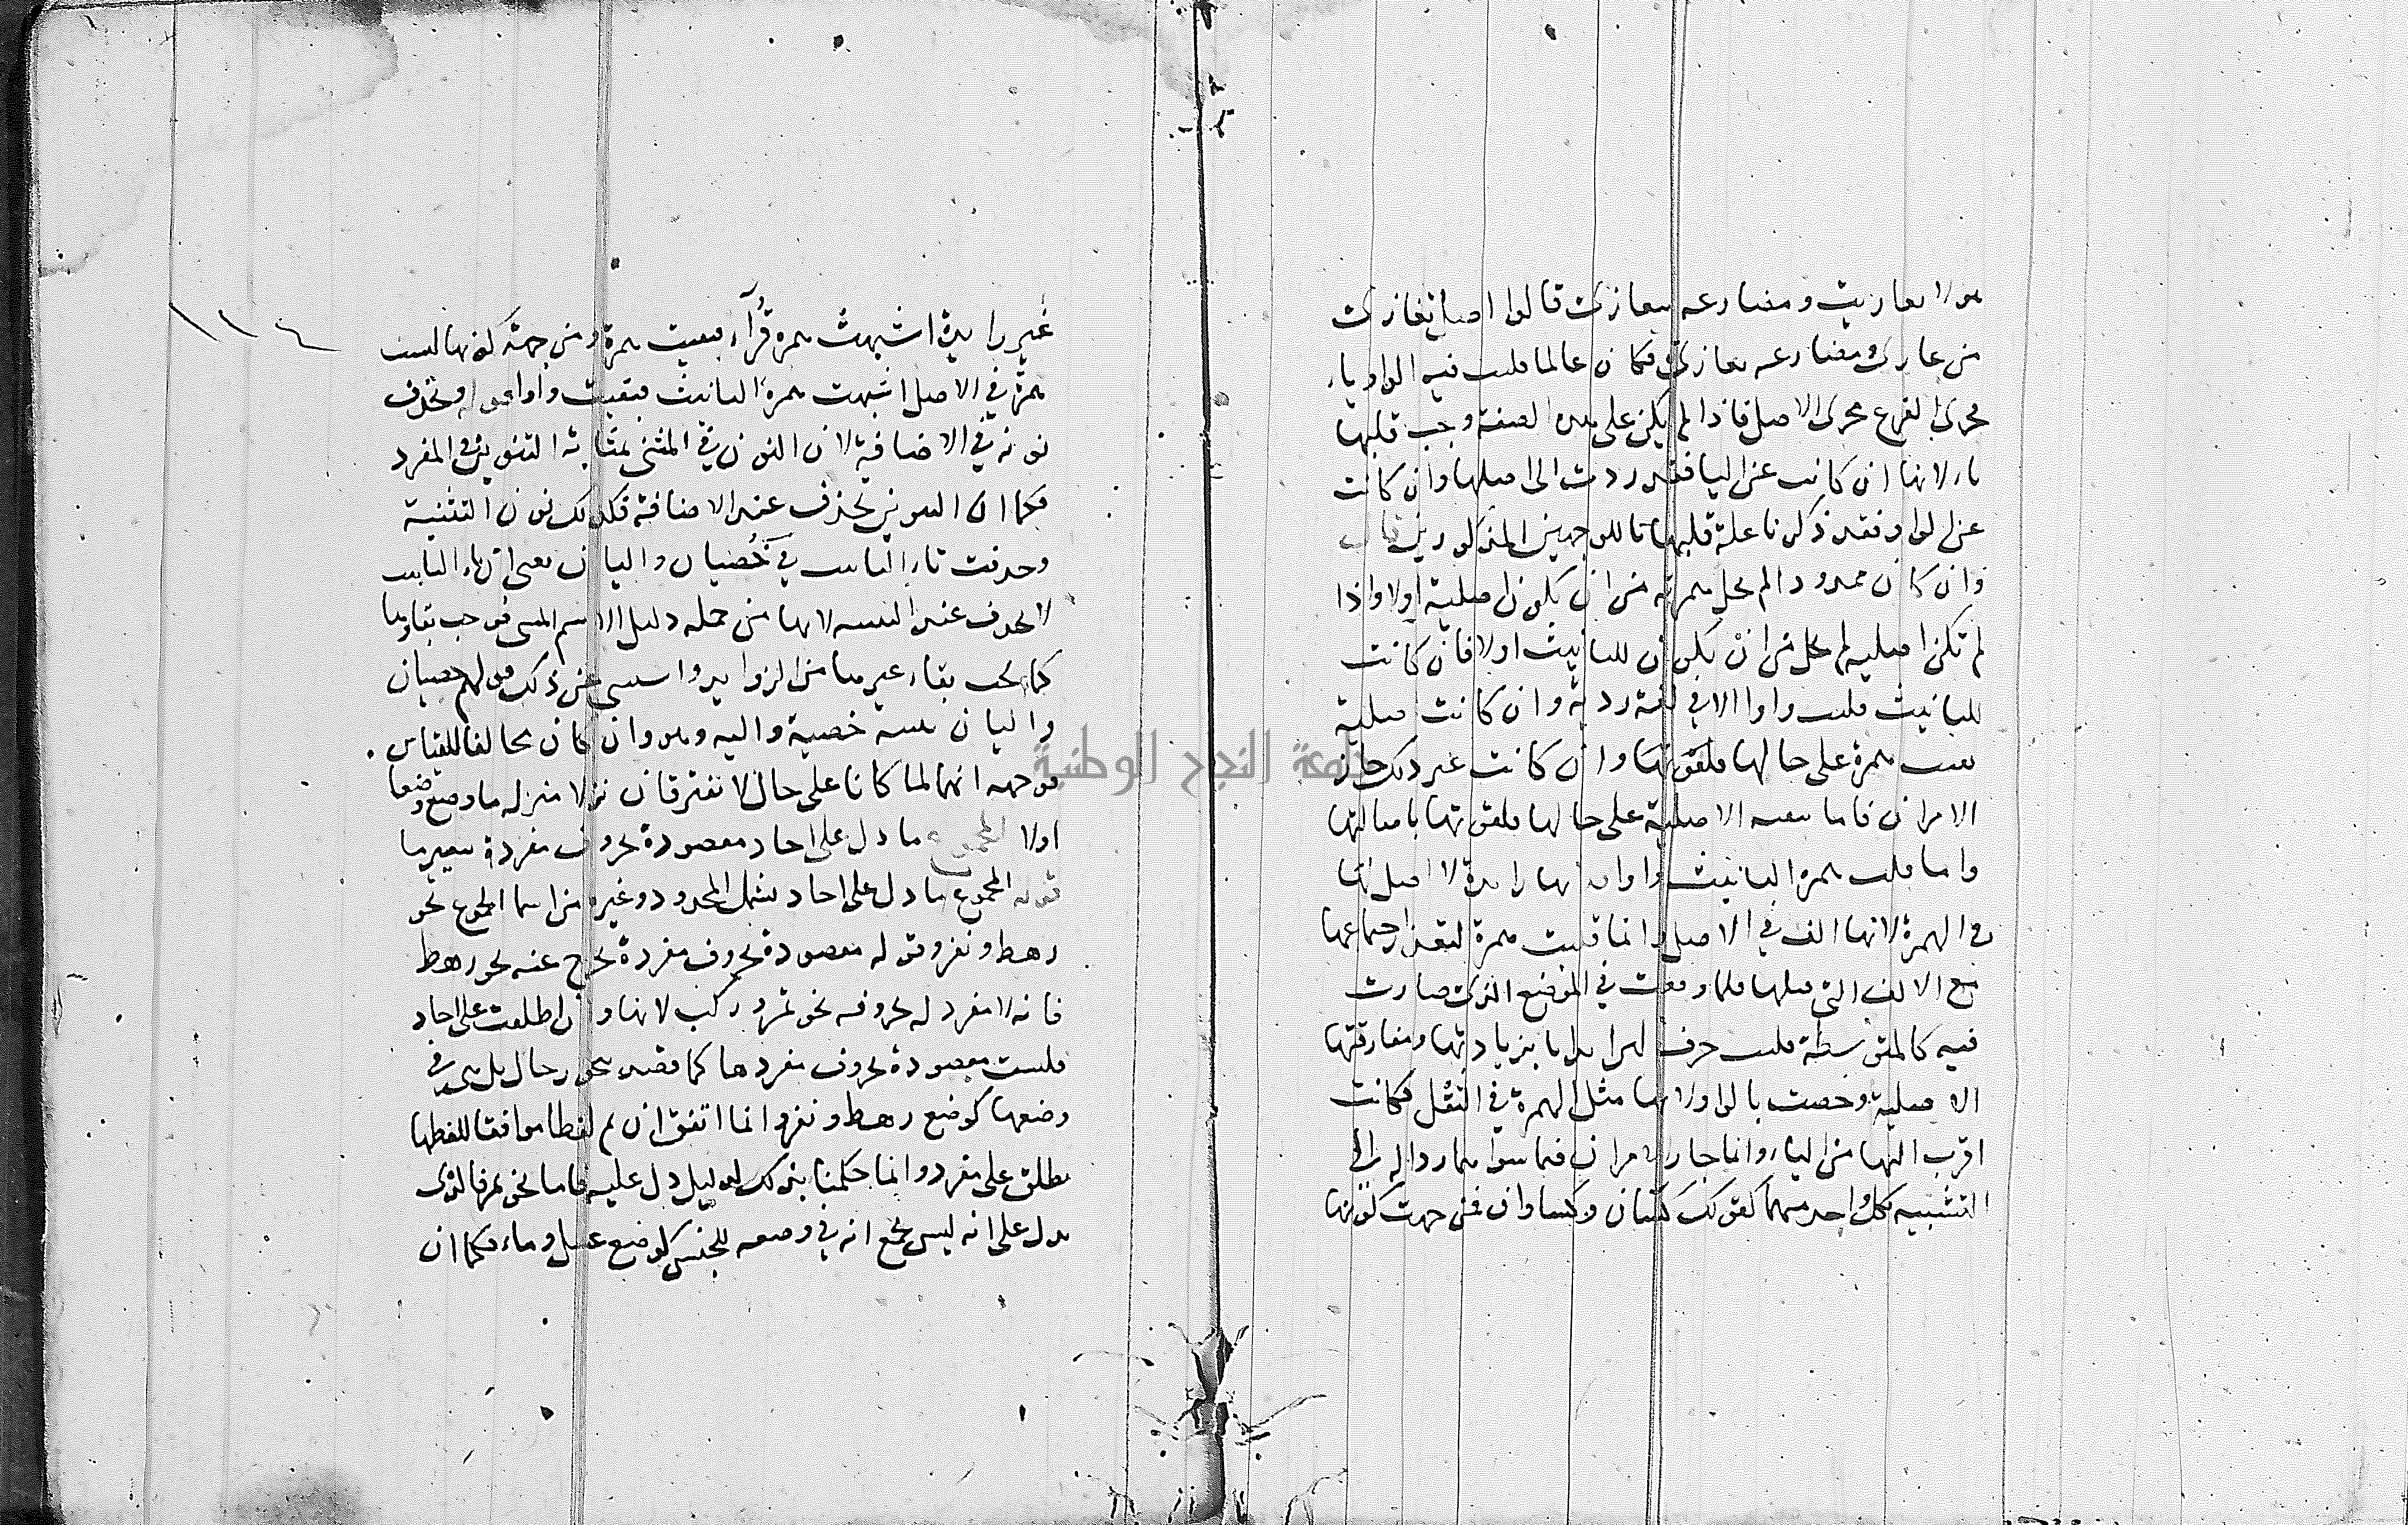 يقولون تغازيت ومضارعه يتغازى قالوا اصل تغازى
من غازى ومضارعه يغازى فكان غالبا قلبت فيه الواو ياء
مجرى الفرع مجرى الاصل فاذا لم يكن على هذه الصفة وجب قلبها
ياء لانها ان كانت عن اليا فقد ردت الى اصلها وان كانت
عن الواو فقد ذكرنا علة قلبها يا للوجهين المذكورين قال
وان كان ممدودا لم يخل همزته من ان يكون اصلية اولا واذا
لم تكن اصلية لم يخل من ان يكون للتانيث اولا فان كانت
للتانيث قلبت واوا الا في لغة ردية وان كانت اصلية
بقيت همزة على حالها فلقوتها وان كانت غير ذلك جاز
الامران فاما بقيت الاصلية على حالها فلقوتها باصالتها
واما قلب همزة التانيث واوا فلانها زايدة لا اصل لها
في الهمزة لانها الف في الاصل وانما قلبت همزة لتعذر اجتماعها
مع الالف التي قبلها فلما وقعت في الموضع الذي صارت
فيه كالمتوسطة قلبت حرف لين ايذانا بزيادتها ومفارقتها
الاصلية وخصت بالواو لانها مثل الهمزة في الثقل فكانت
اقرب اليها من الياء وانما جاز الامران فيما سواهما ردا له الى
التشبيه بكل واحد منهما كقولك كساان وكساوان فمن جهت كونها
١١٤
غير زايدة اشبهت همزة قُرآء فبقيت همزة ومن جهة كونها ليست
همزة في الاصل اشبهت همزة التانيث فبقيت واوا قوله وتحذف
نونه في الاضافة لان النون في المثنى بمثابة التنوين في المفرد
فكما ان التنوين يحذف عند الاضافة فكذلك نون التثنية
وحذفت تاء التانيث في خُصيان واليان يعنى ان تاء التانيث
لا تحذف عند التثنية لانها من جملة دليل الاسم المثنى فوجب بقاؤها
كما يجب بقاء غيرها من الزوايد واستثنى من ذلك قولهم خصيان
واليان تثنية خصية والية وهو وان كان مخالفا للقياس .
فوجهه انهما لما كانا على حال لا يفترقان نزلا منزلة ما وضع وضعا
اولا المجموع ما دل على احاد مقصودة بحروف مفردة بتغيير ما
قوله المجموع ما دل على احاد يشمل المحدود وغيره من اسما الجموع نحو
رهط ونفر وقوله مقصودة بحروف مفردة يخرج عنه نحو رهط
فانه لا مفرد له بحروفه نحو تمر وركب لانها وان اطلقت على احاد
فليست مقصودة بحروف مفردها كما قصد بنحو رجال بل هي في
وضعها كوضع رهط ونفر وانما اتفق ان ثم لفظا موافقا للفظها
يطلق على مفرد وانما حكمنا بذلك لدليل دل عليه فاما نحو تمر فالذى
يدل على انه ليس بجمع انه في وضعه للجنس كوضع عسل وماء فكما ان
جامعة النجاح الوطنية